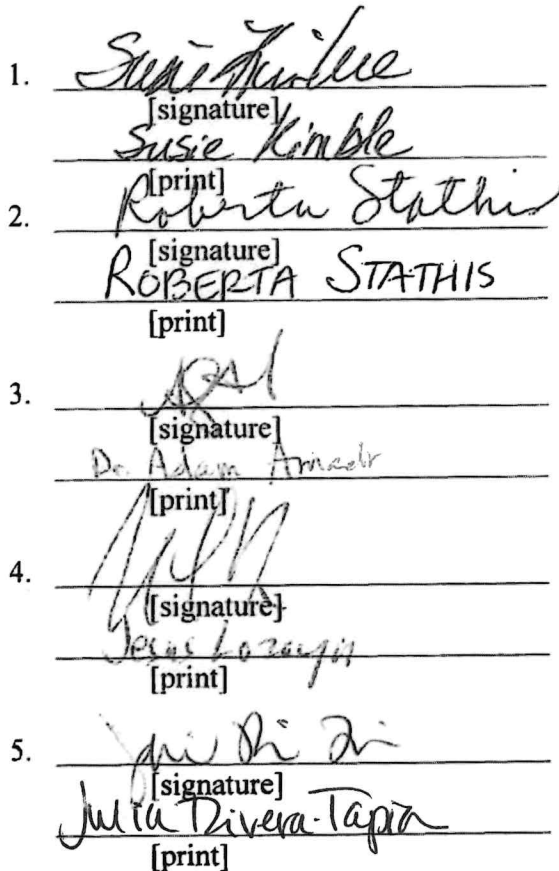 1. Susie Kimble
[signature]
Susie Kimble
[print]
2. Roberta Stathis
[signature]
ROBERTA STATHIS
[print]
3.
[signature]
Dr. Adam
[print]
4.
[signature]
Jesus
[print]
5.
[signature]
Julia Rivera-Tapia
[print]